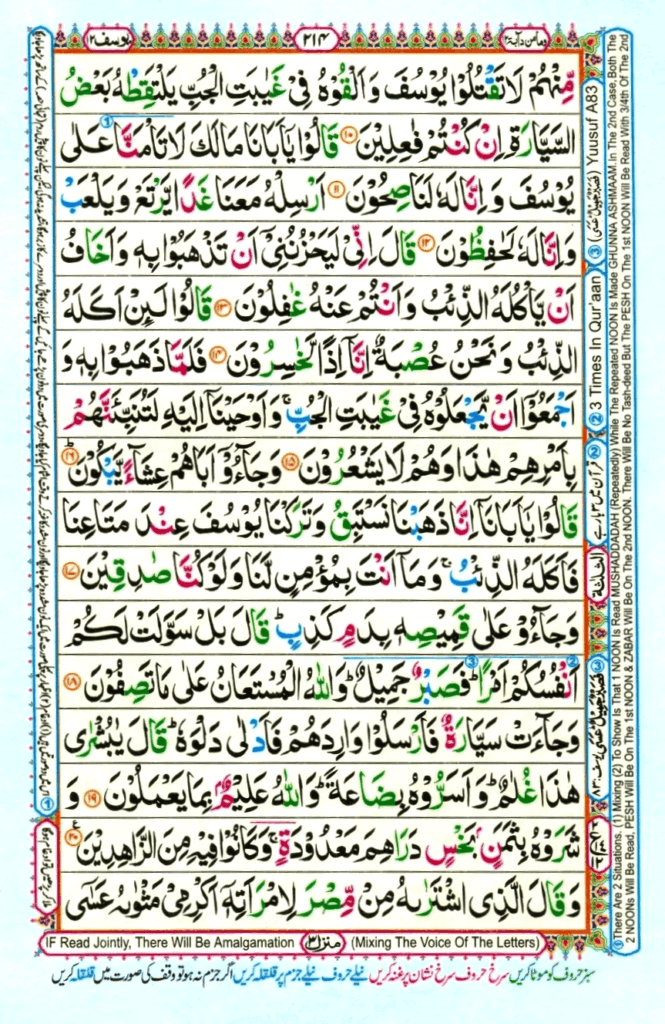 يوسف ١٢
٣١٤
ومامن دآبة ١٢
مِّنْهُمْ لَا تَقْتُلُوْا يُوْسُفَ وَاَلْقُوْهُ فِيْ غَيٰبَتِ الْجُبِّ يَلْتَقِطْهُ بَعْضُ
السَّيَّارَةِ اِنْ كُنْتُمْ فٰعِلِيْنَ ١٠ قَالُوْا يٰٓاَبَانَا مَالَكَ لَا تَاْمَنَّا عَلٰى
يُوْسُفَ وَاِنَّا لَهٗ لَنٰصِحُوْنَ ١١ اَرْسِلْهُ مَعَنَا غَدًا يَّرْتَعْ وَيَلْعَبْ
وَاِنَّا لَهٗ لَحٰفِظُوْنَ ١٢ قَالَ اِنِّيْ لَيَحْزُنُنِيْٓ اَنْ تَذْهَبُوْا بِهٖ وَاَخَافُ
اَنْ يَّاْكُلَهُ الذِّئْبُ وَاَنْتُمْ عَنْهُ غٰفِلُوْنَ ١٣ قَالُوْا لَئِنْ اَكَلَهُ
الذِّئْبُ وَنَحْنُ عُصْبَةٌ اِنَّآ اِذًا لَّخٰسِرُوْنَ ١٤ فَلَمَّا ذَهَبُوْا بِهٖ وَ
اَجْمَعُوْٓا اَنْ يَّجْعَلُوْهُ فِيْ غَيٰبَتِ الْجُبِّ ۚ وَاَوْحَيْنَآ اِلَيْهِ لَتُنَبِّئَنَّهُمْ
بِاَمْرِهِمْ هٰذَا وَهُمْ لَا يَشْعُرُوْنَ ١٥ وَجَآءُوْٓ اَبَاهُمْ عِشَآءً يَّبْكُوْنَ ١٦
قَالُوْا يٰٓاَبَانَآ اِنَّا ذَهَبْنَا نَسْتَبِقُ وَتَرَكْنَا يُوْسُفَ عِنْدَ مَتَاعِنَا
فَاَكَلَهُ الذِّئْبُ ۚ وَمَآ اَنْتَ بِمُؤْمِنٍ لَّنَا وَلَوْ كُنَّا صٰدِقِيْنَ ١٧
وَجَآءُوْ عَلٰى قَمِيْصِهٖ بِدَمٍ كَذِبٍ ۭ قَالَ بَلْ سَوَّلَتْ لَكُمْ
اَنْفُسُكُمْ اَمْرًا ۭ فَصَبْرٌ جَمِيْلٌ ۭ وَاللّٰهُ الْمُسْتَعَانُ عَلٰى مَا تَصِفُوْنَ ١٨
وَجَآءَتْ سَيَّارَةٌ فَاَرْسَلُوْا وَارِدَهُمْ فَاَدْلٰى دَلْوَهٗ ۭ قَالَ يٰبُشْرٰى
هٰذَا غُلٰمٌ ۭ وَاَسَرُّوْهُ بِضَاعَةً ۭ وَاللّٰهُ عَلِيْمٌۢ بِمَا يَعْمَلُوْنَ ١٩ وَ
شَرَوْهُ بِثَمَنٍۢ بَخْسٍ دَرَاهِمَ مَعْدُوْدَةٍ ۚ وَكَانُوْا فِيْهِ مِنَ الزَّاهِدِيْنَ ٢٠
وَقَالَ الَّذِي اشْتَرٰىهُ مِنْ مِّصْرَ لِامْرَاَتِهٖٓ اَكْرِمِيْ مَثْوٰىهُ عَسٰٓى
IF Read Jointly, There Will Be Amalgamation
منزل ٣
(Mixing The Voice Of The Letters)
سبز حروف کو موٹا کریں سرخ حروف سرخ نشان پر غنہ کریں نیلے حروف نیلے جزم پر قلقلہ کریں اگر جزم نہ ہو تو وقف کی صورت میں قلقلہ کریں
① There Are 2 Situations, (1) Mixing (2) To Show Is That 1 NOON Is Read MUSHADDADAH (Repeatedly) While The Repeated NOON Is Made GHUNNA ASHMAAM.In The 2nd Case, Both The
2 NOONs Will Be Read, PESH Will Be On The 1st NOON & ZABAR Will Be On The 2nd NOON. There Will Be No Tash-deed But The PESH On The 1st NOON Will Be Read With 3/4th Of The 2nd
② 3 Times In Qur'aan
③ (فصبر جميل عسى) Yuusuf A83
② قرآن میں ۳ بار ہے
③ فصبر جميل عسى يوسف ٨٣